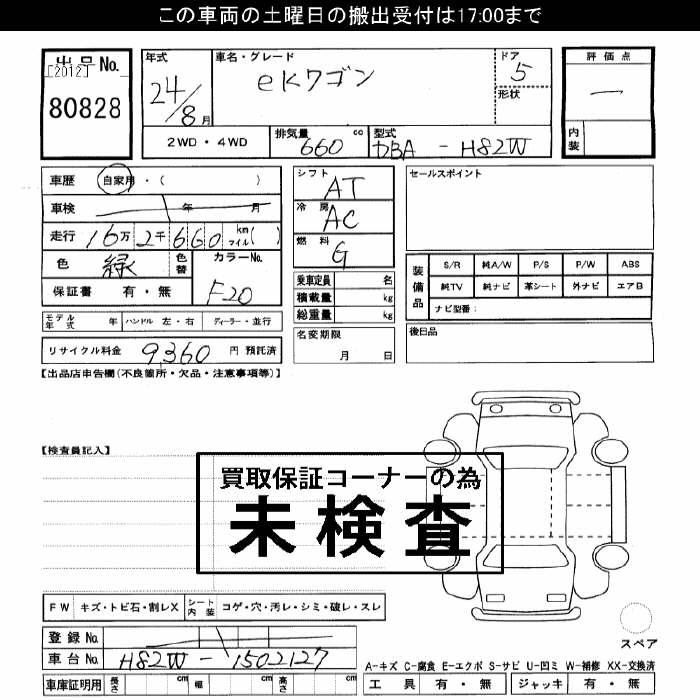 この車両の土曜日の搬出受付は17:00まで
出品No.
[2012]
80828
年式
24/8月
車名・グレード
eKワゴン
ドア
5
形状
評価点
一
内装
2WD・4WD
排気量
660 cc
型式
DBA - H82W
車歴 自家用・( )
車検 年 月
走行 16万2千660 km マイル( )
色 緑 色替 カラーNo. F20
保証書 有・無
モデル年式 年 ハンドル 左・右 ディーラー・並行
リサイクル料金 9,360 円 預託済
シフト AT
冷房 AC
燃料 G
乗車定員 名
積載量 kg
総重量 kg
名変期限
月 日
セールスポイント
装備品
S/R 純A/W P/S P/W ABS
純TV 純ナビ 革シート 外ナビ エアB
ナビ型番:
後日品
【出品店申告欄(不良箇所・欠品・注意事項等)】
【検査員記入】
買取保証コーナーの為
未検査
FW キズ・トビ石・割レX シート内装 コゲ・穴・汚レ・シミ・破レ・スレ
登録No.
車台No. H82W - 1502127
車庫証明用 長さ cm 幅 cm 高さ cm
スペア
A-キズ C-腐食 E-エクボ S-サビ U-凹ミ W-補修 XX-交換済
工具 有・無 ジャッキ 有・無